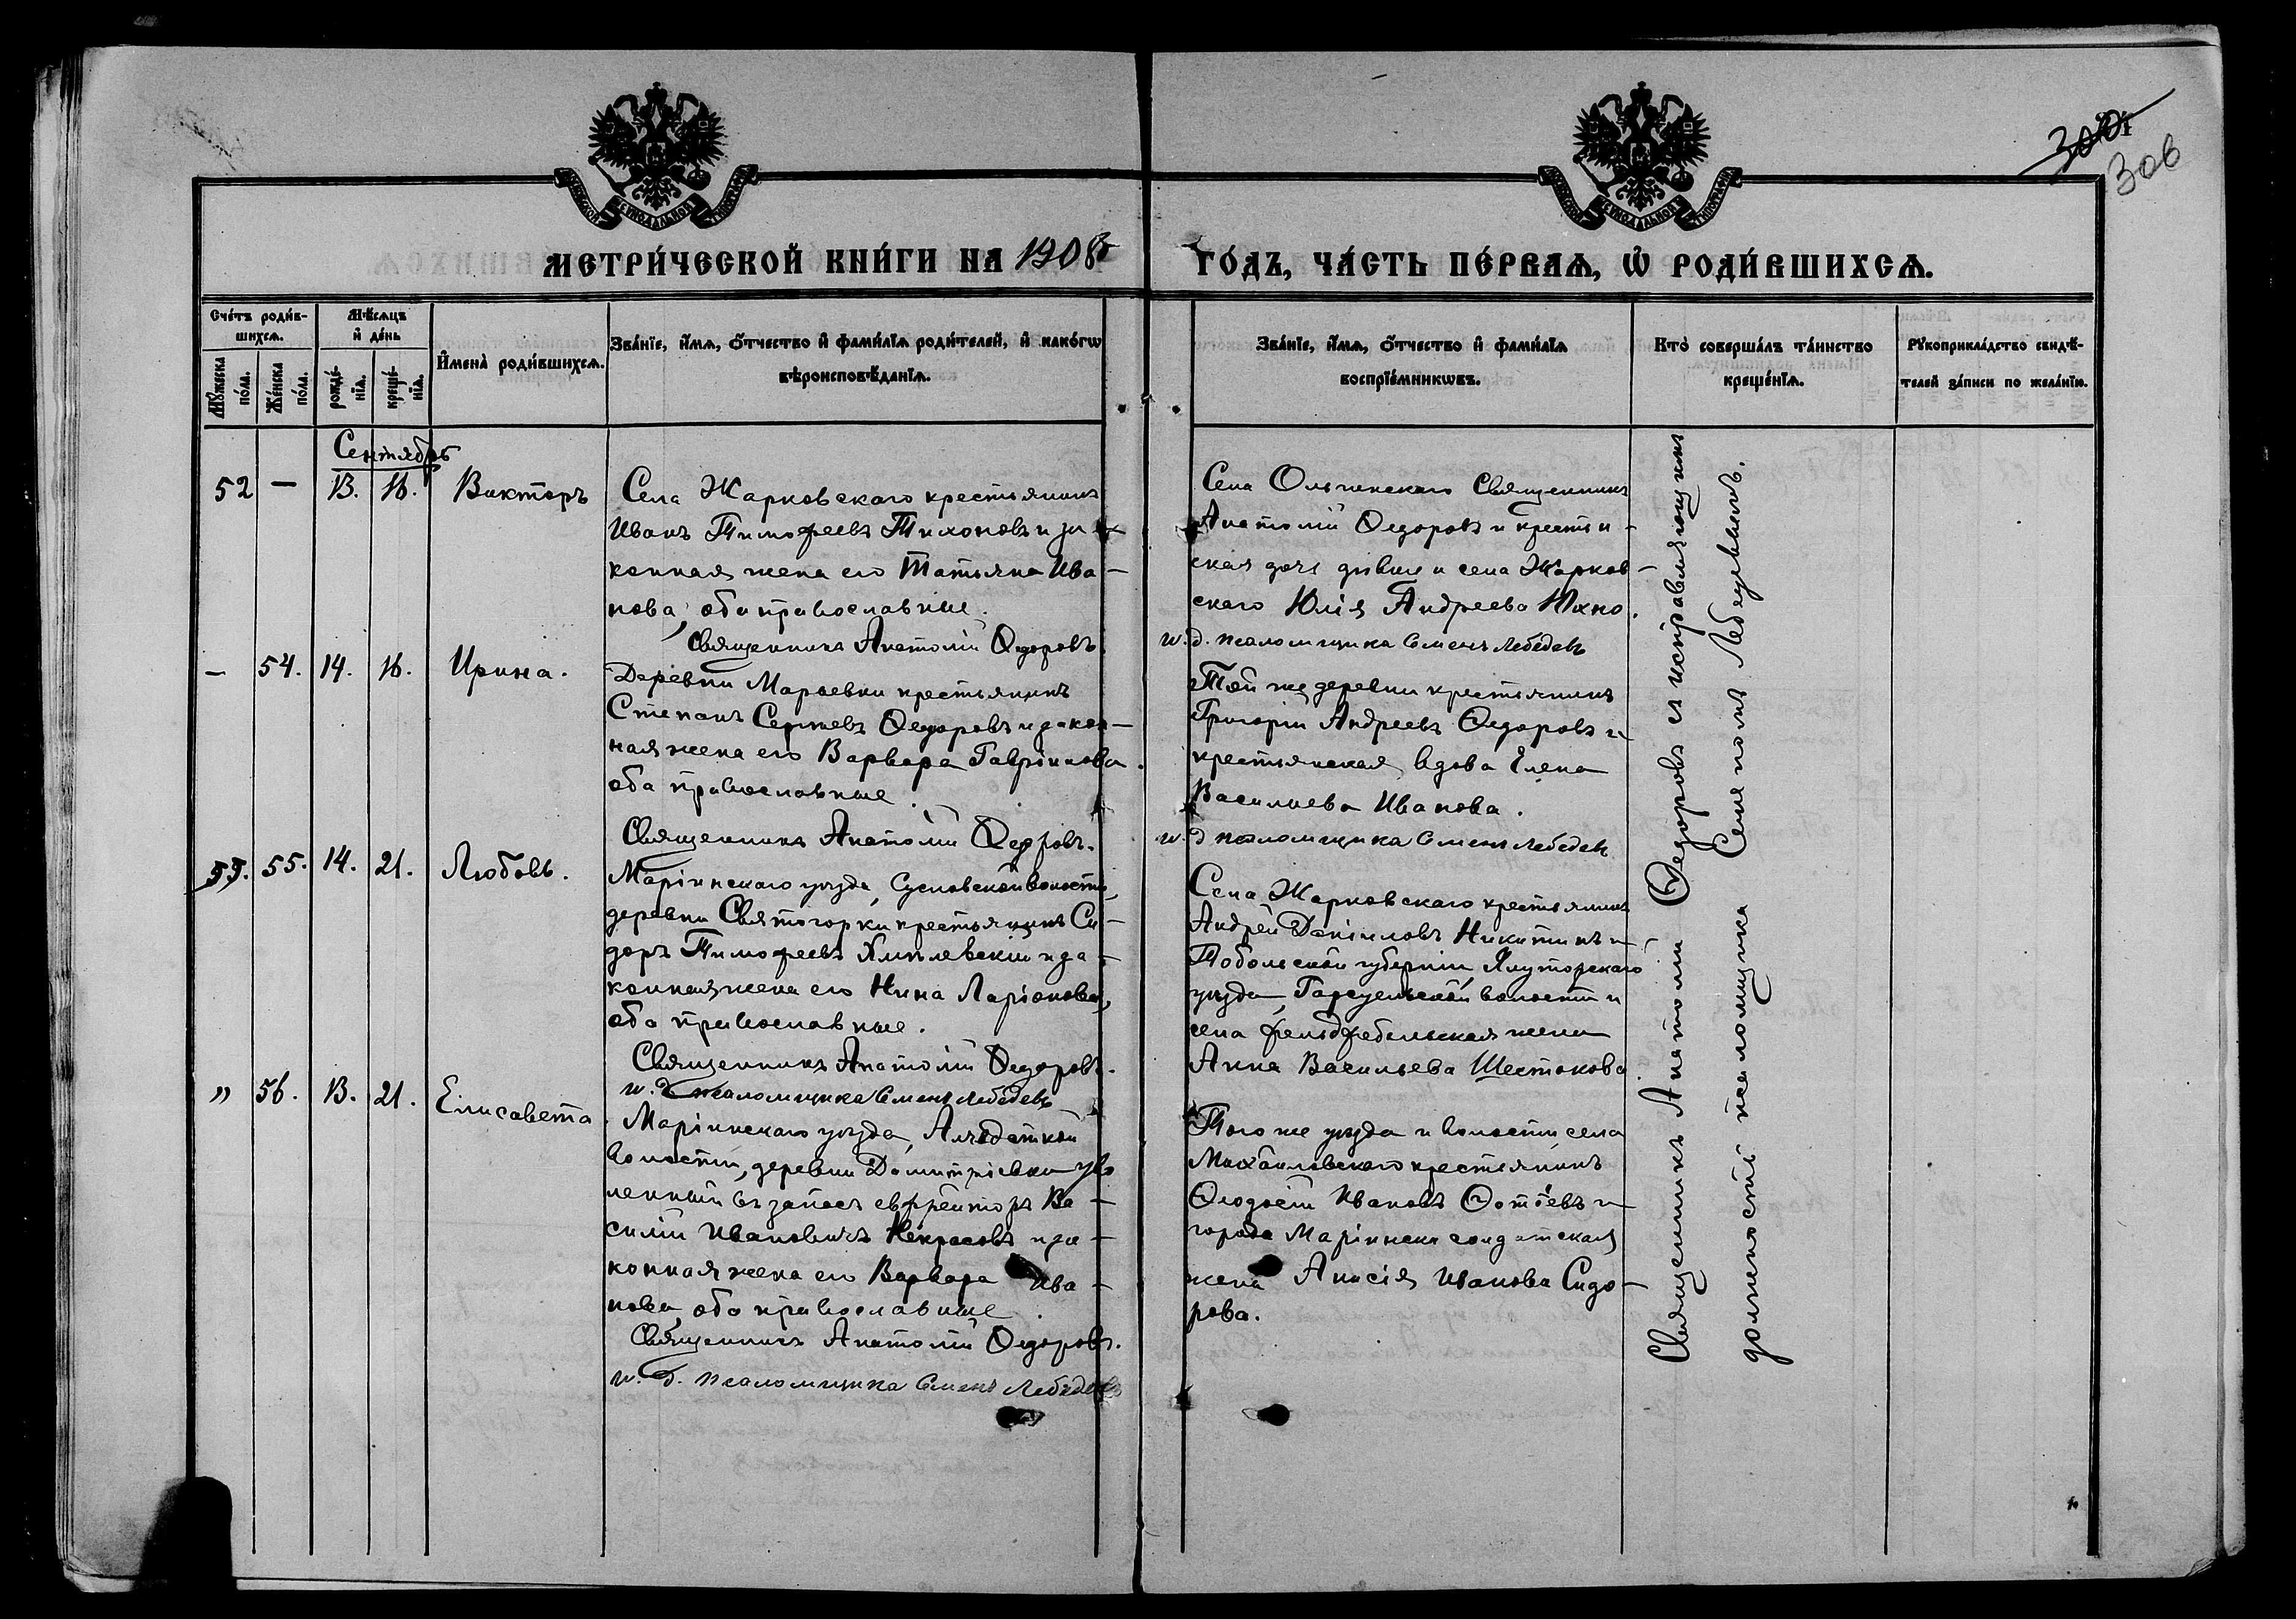 306
МЕТРИ́ЧЕСКОЙ КНИ́ГИ НА 1908
ГО́ДЪ, ЧА́СТЬ ПЕ́РВАѦ, Ѡ РОДИ́ВШИХСѦ.
Сче́тъ роди́в-
шихсѧ.
Мѣ́сѧцъ
и҆ де́нь
Мꙋ́жеска
по́ла.
Же́нска
по́ла.
рожде́-
нїѧ.
креще́-
нїѧ.
И҆мена̀ роди́вшихсѧ.
Зва́нїе, и҆́мѧ, ѻ҆́тчество и҆ фами́лїѧ роди́телей, и҆ како́гѡ
вѣроисповѣ́данїѧ.
Зва́нїе, и҆́мѧ, ѻ҆́тчество и҆ фами́лїѧ
воспрїе́мникѡвъ.
Кто̀ соверша́лъ та́инство
креще́нїѧ.
Рꙋкоприкла́дство свидѣ́-
телей за́писи по жела́нїю.
Сентябрь
52 — 13. 16. Викторъ
Села Жарковскаго крестьянинъ
Иванъ Тимофеевъ Тихоновъ и за-
конная жена его Татьяна Ива-
нова, оба православные.
Священникъ Анатолій Ѳедоровъ
Села Ольгинскаго Священникъ
Анатолій Ѳедоровъ и крестьян-
ская дочь дѣвица села Жарков-
скаго Юлія Андреева Юхно.
и. д. псаломщика Семенъ Лебедевъ
— 54. 14. 16. Ирина.
Деревни Марьевки крестьянинъ
Степанъ Сергѣевъ Ѳедоровъ и закон-
ная жена его Варвара Гавріилова
оба православные.
Священникъ Анатолій Ѳедоровъ.
Той же деревни крестьянинъ
Григорій Андреевъ Ѳедоровъ и
крестьянская вдова Елена
Васильева Иванова.
и. д. псаломщика Семенъ Лебедевъ
55. 14. 21. Любовь.
Маріинскаго уѣзда, Сусловской волости,
деревни Святогорки крестьянинъ Си-
доръ Тимофеевъ Хмѣлевскій и за-
конная жена его Нина Ларіонова,
оба православные.
Священникъ Анатолій Ѳедоровъ.
и. д. псаломщика Семенъ Лебедевъ
Села Жарковскаго крестьянинъ
Андрей Даниловъ Никитинъ и
Тобольской губерніи, Ялуторскаго
уѣзда, волости и
села фельдфебельская жена
Анна Васильева Шестакова.
" 56. 13. 21. Елисавета
Маріинскаго уѣзда, Алчедатской
волости, деревни Димитріевки уво
ленный въ запасъ ефрейторъ Ва-
силій Ивановичъ Некрасовъ и за-
конная жена его Варвара Ива-
нова, оба православные.
Священникъ Анатолій Ѳедоровъ.
и. д. псаломщика Семенъ Лебедевъ
Того же уѣзда и волости села
Михайловскаго крестьянинъ
Ѳеодосій Ивановъ Ѳотѣевъ и
города Маріинска солдатская
жена Анисія Иванова Сидо-
рова.
Священникъ Анатолій Ѳедоровъ съ исправляющимъ
должность псаломщика Семеномъ Лебедевымъ.